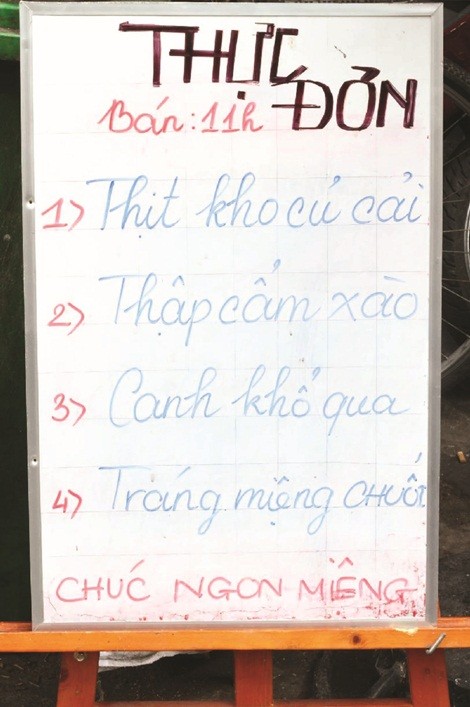 THỰC
ĐƠN
Bán: 11h
1) Thịt kho củ cải
2) Thập cẩm xào
3) Canh khổ qua
4) Tráng miệng CHUỐI
CHÚC NGON MIỆNG